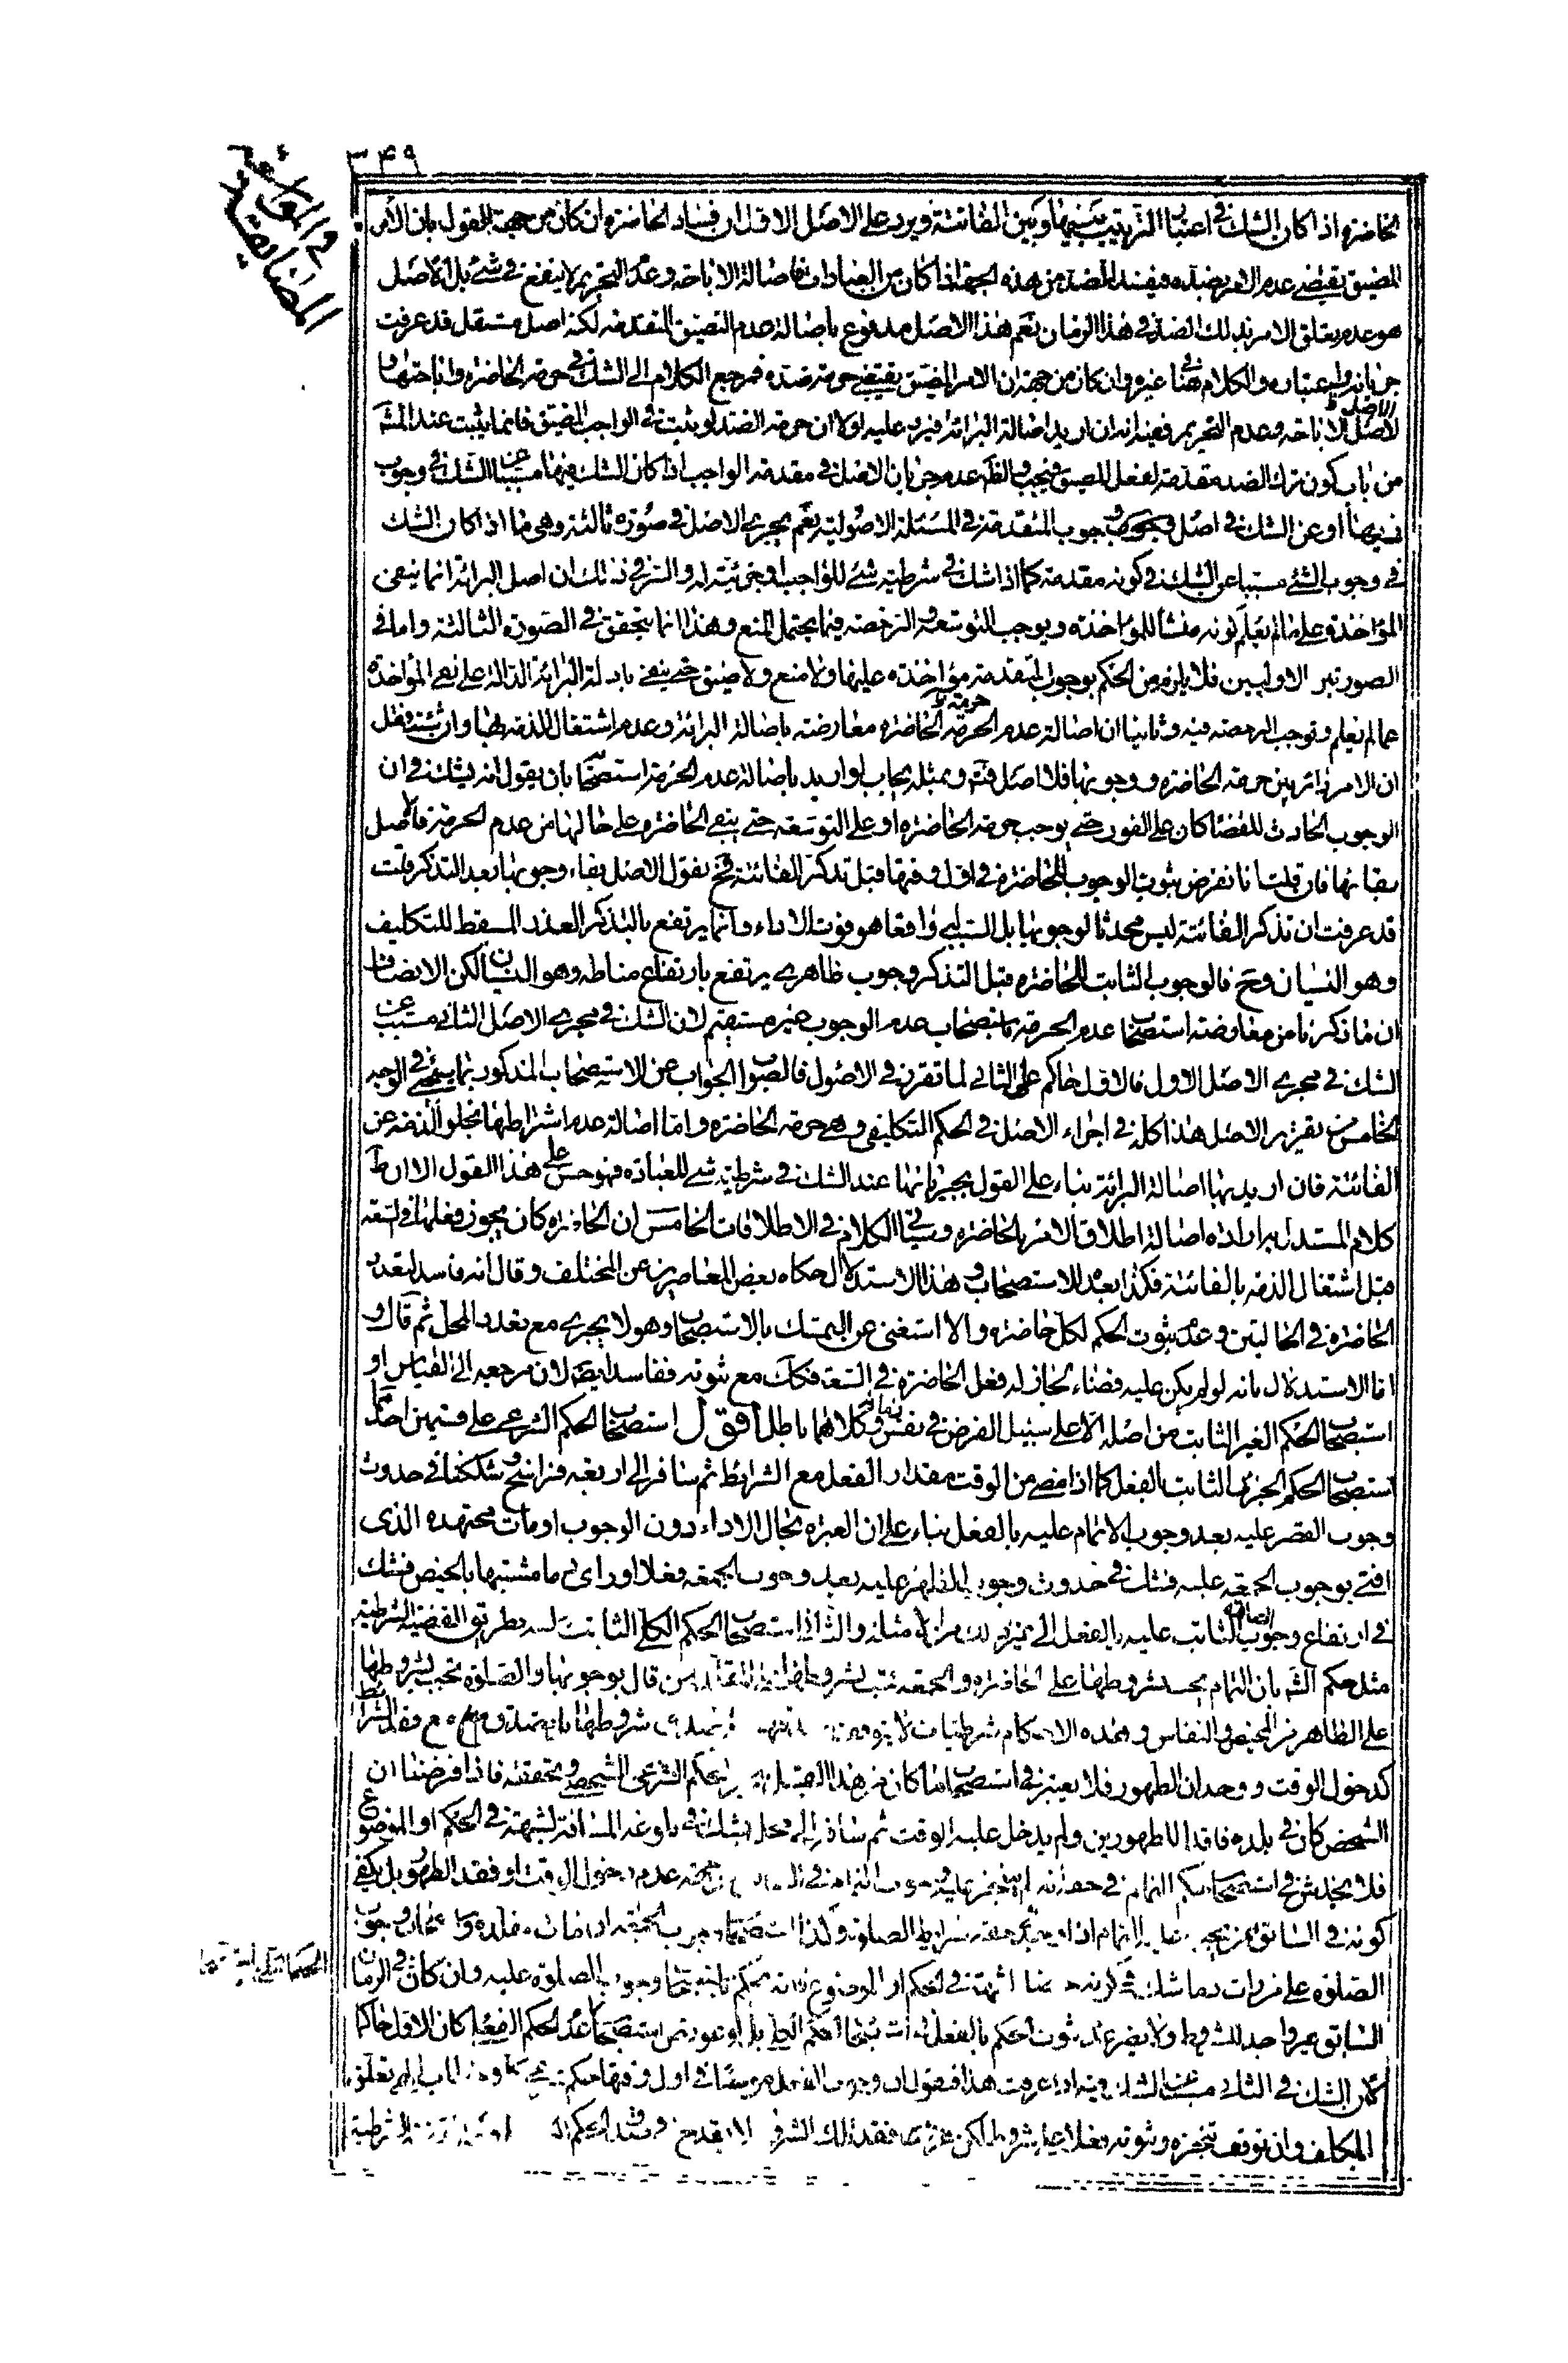 ٣٤٩
في المواسعة
المضايقة
الحاضرة اذا كان الشك في اعتبار الترتيب بينها وبين الفائتة ويرد على الاصل الاول ان فساد الحاضرة ان كان من جهة القول بان الامر
المضيق يقتضي عدم الامر بضده فيفسد الضد من هذه الجهة اذا كان من العبادات فاصالة الاباحة وعدم التحريم لا ينفع في شئ بل الاصل
هو عدم تعلق الامر بذلك الضد في هذا الزمان نعم هذا الاصل مدفوع باصالة عدم التضيق المتقدمة لكنه اصل مستقل قد عرفت
جريانه واعتباره والكلام هنا في غيره وان كان من جهة ان الامر المضيق يقتضي حرمة ضده فمرجع الكلام الى الشك في حرمة الحاضرة واباحتها و
الاصل الاباحة وعدم التحريم ففيه انه ان اريد اصالة البرائة فيرد عليه اولا ان حرمة الضد لو ثبت في الواجب المضيق فانما يثبت عند المش
من باب كون ترك الضد مقدمة لفعل المضيق فيجب والظ عدم جريان الاصل في مقدمة الواجب اذا كان الشك فيها مسببا عن الشك في وجوب
ذيها او عن الشك في اصل وجوب المقدمة في المسئلة الاصولية نعم يجري الاصل في صورة ثالثة وهي ما اذا كان الشك
في وجوب الشئ مسببا عن الشك في كونه مقدمة كما اذا شك في شرطية شئ للواجب او جزئيته له والسر في ذلك ان اصل البرائة انما ينفي
المؤاخذة على ما لم يعلم كونه منشأ للمؤاخذة ويوجب التوسعة والرخصة فيما يحتمل المنع وهذا انما يتحقق في الصورة الثالثة واما في
الصورتين الاوليين فلا يلزم من الحكم بوجوب المقدمة مؤاخذة عليها ولا منع ولا ضيق حتى ينفى بادلة البرائة الدالة على نفي المؤاخذة
عما لم يعلم وتوجب الرخصة فيه وثانيا ان اصالة عدم حرمة الحاضرة معارضة باصالة البرائة وعدم اشتغال الذمة بها وان شئت فقل
ان الامر دائر بين حرمة الحاضرة ووجوبها فلا اصل فت وبمثله يجاب لو اريد باصالة عدم الحرمة استصحابها بان يقول انه يشك في ان
الوجوب الحادث للقضا كان على الفور حتى يوجب حرمة الحاضرة او على التوسعة حتى يبقى الحاضرة على حالها من عدم الحرمة فالاصل
بقائها فان قلت انا نفرض ثبوت الوجوب للحاضرة في اول وقتها قبل تذكر الفائتة فح نقول الاصل بقاء وجوبها بعد التذكر قلت
قد عرفت ان تذكر الفائتة ليس محدثا لوجوبها بل السبب واقعا هو فوت الاداء وانما يرتفع بالتذكر العذر المسقط للتكليف
وهو النسيان وح فالوجوب الثابت للحاضرة قبل التذكر وجوب ظاهري يرتفع بارتفاع مناطه وهو النسيان لكن الانصاف
ان ما ذكرنا من معارضة استصحاب عدم الحرمة باستصحاب عدم الوجوب غير مستقيم لان الشك في مجرى الاصل الثاني مسبب عن
الشك في مجرى الاصل الاول فالاول حاكم على الثاني لما تقرر في الاصول فالصواب الجواب عن الاستصحاب المذكور بما سيجئ في الوجه
الخامس من تقرير الاصل هذا كله في اجراء الاصل في الحكم التكليفي وهي حرمة الحاضرة واما اصالة عدم اشتراطها بخلو الذمة عن
الفائتة فان اريد بها اصالة البرائة بناء على القول بجريانها عند الشك في شرطية شئ للعبادة فهو حسن على هذا القول الا ان ظ
كلام المستدل به ارادة اصالة اطلاق الامر بالحاضرة وسيأتي الكلام في الاطلاقات الخامس ان الحاضرة كان يجوز فعلها في السعة
قبل اشتغال الذمة بالفائتة فكذا بعده للاستصحاب وهذا الاستدلال حكاه بعض المعاصرين عن المختلف وقال انه فاسد لتعدد
الحاضرة في الحالتين وعدم ثبوت الحكم لكل حاضرة والا استغنى عن التمسك بالاستصحاب وهو لا يجري مع تعدد المحل ثم قال و
اما الاستدلال بانه لو لم يكن عليه قضاء لجاز له فعل الحاضرة في السعة فكذا مع ثبوته ففاسد ايضا لان مرجعه الى القياس او
استصحاب الحكم الغير الثابت من اصله الا على سبيل الفرض في نفس زمانه وكلاهما باطل اقول استصحاب الحكم الشرعي على قسمين احدهما
استصحاب الحكم الجزئي الثابت بالفعل كما اذا مضى من الوقت مقدار الفعل مع الشرائط ثم سافر الى اربعة فراسخ وشككنا في حدوث
وجوب القصر عليه بعد وجوب الاتمام عليه بالفعل بناء على ان العبرة بحال الاداء دون الوجوب او مات مجتهده الذي
افتى بوجوب الجمعة عليه فشك في حدوث وجوب الظهر عليه بعد وجوب الجمعة فعلا او راى دما مشتبها بالحيض فشك
في ارتفاع وجوب الصلوة الثابت عليه بالفعل الى غير ذلك من الامثلة والثاني استصحاب الحكم الكلي الثابت له بطريق القضية الشرطية
مثل حكم الش بان التمام يجب بشروطها على الحاضر والجمعة تجب بشروطها على مقلد من قال بوجوبها والصلوة تجب بشروطها
على الطاهر من الحيض والنفاس وهذه الاحكام شرطيات لا يتوقف شروطها مع فقد الشرائط
كدخول الوقت ووجدان الطهور فلا يعتبر في استصحاب ما كان من هذا القبيل الحكم الشرعي الشخصي وتحققه فاذا فرضنا ان
الشخص كان في بلده فاقدا للطهورين ولم يدخل عليه الوقت ثم سافر الى محل يشك في بلوغه المسافة لشبهة في الحكم او الموضوع
فلا يخدش في استصحاب حكم التمام في حقه عدم دخول الوقت او فقد الطهور بل يكفي
كونه في السابق ممن يجب عليه التمام اذا شرائط الصلوة وكذا استصحاب وجوب الجمعة اذا مات مقلده واستصحاب وجوب
الصلوة على من رات دما شك في كونه حيضا لشبهة في الحكم او الموضوع فانه يحكم باستصحاب وجوب الصلوة عليه وان كان في الزمان
السابق غير واجد للشروط ولا يضر عدم ثبوت الحكم بالفعل استصحاب عدم الحكم الفعلي كان الاول حاكما
لان الشك في الثاني مسبب عن الشك فيه اذا عرفت هذا فنقول ان وجوب الفعل موسعا في اول وقتها حكم
المكلف وان توقف تنجزه وثبوته فعلا على شروط لكن فقد تلك الشروط لا يقدح في